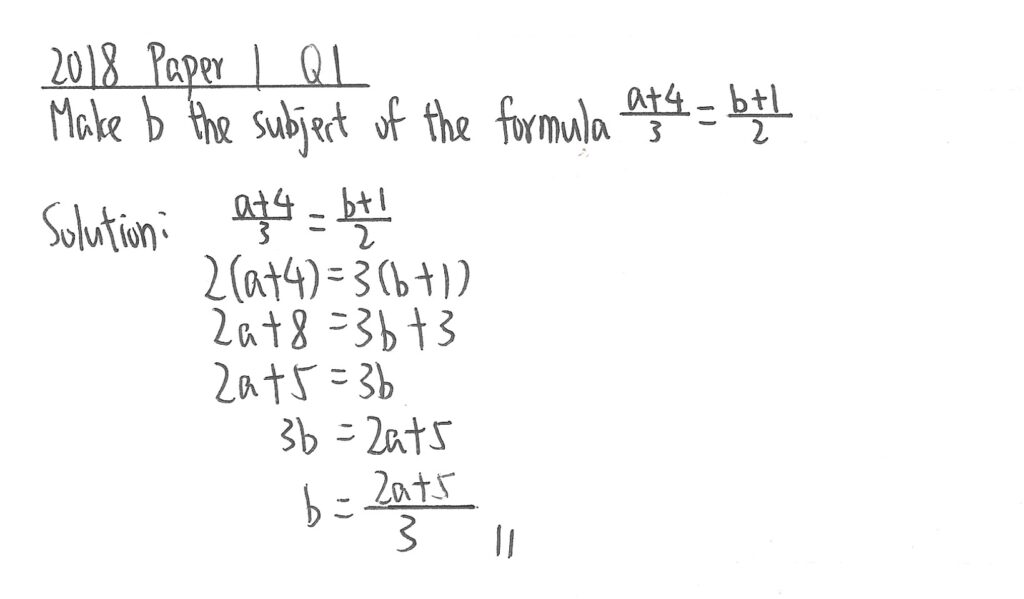 2018 Paper 1 Q1
Make b the subject of the formula (a+4)/3 = (b+1)/2
Solution: (a+4)/3 = (b+1)/2
2(a+4)=3(b+1)
2a+8=3b+3
2a+5=3b
3b=2a+5
b=(2a+5)/3 //